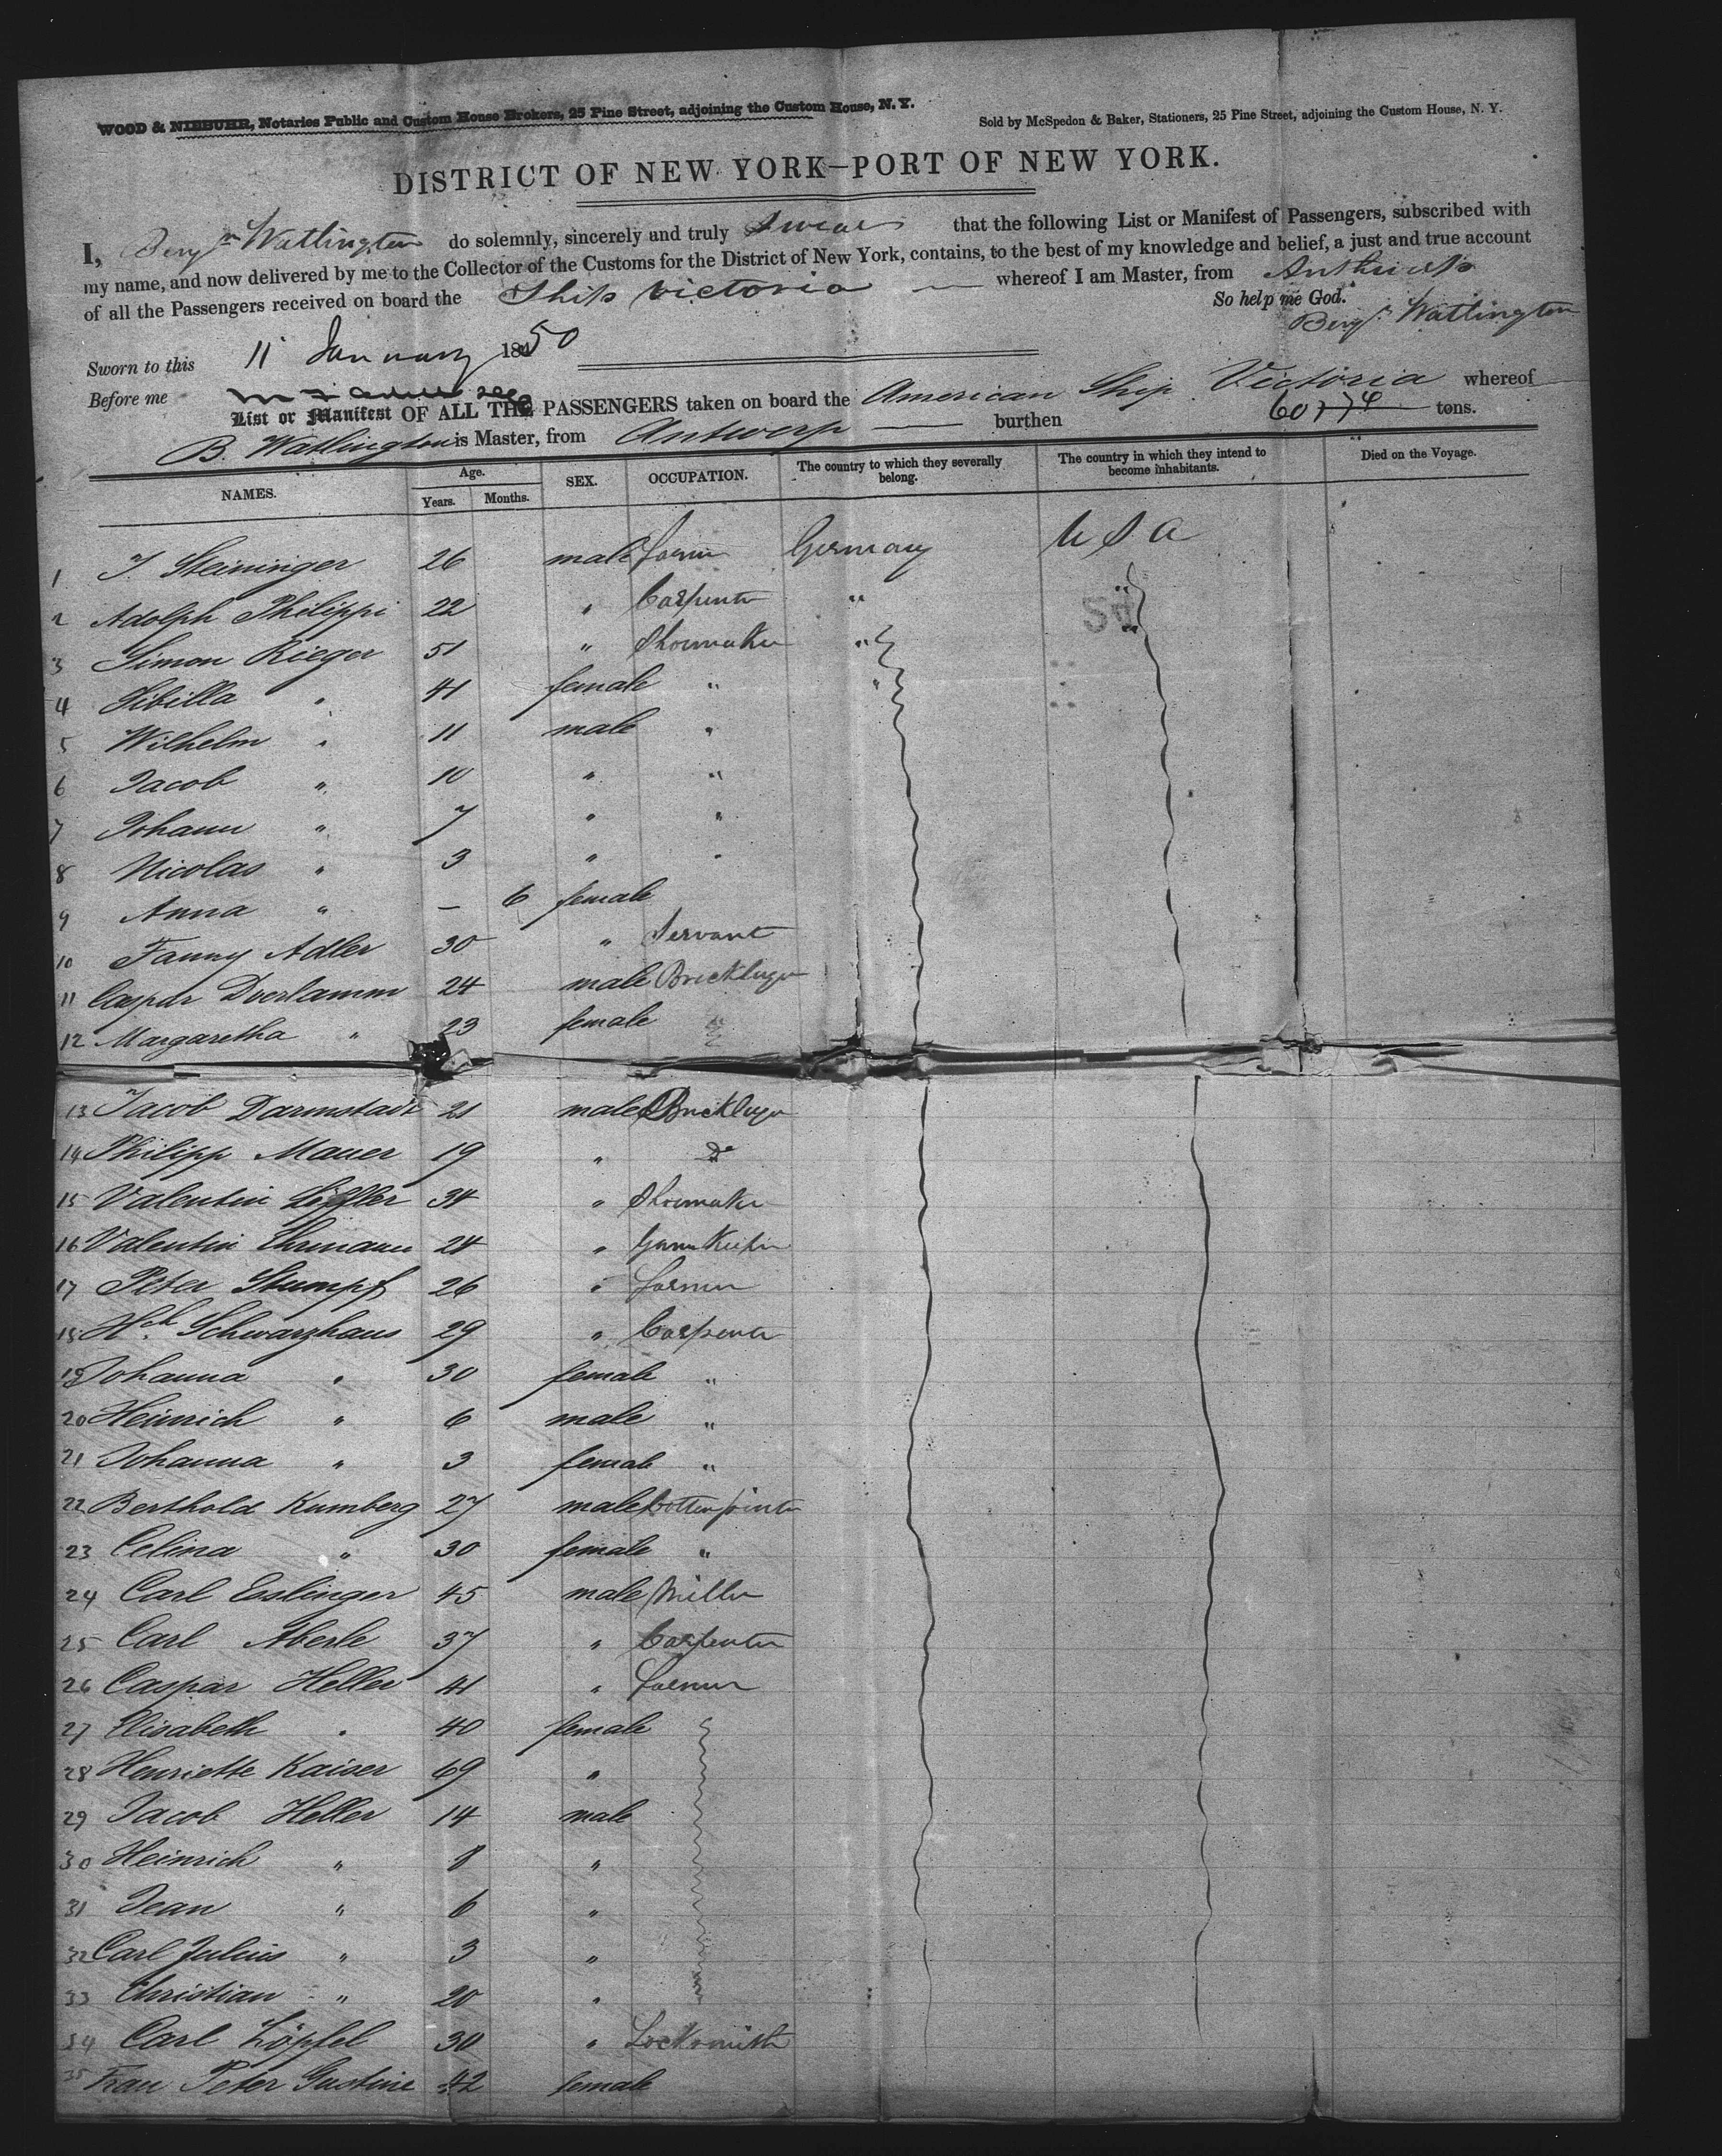 WOOD & NIEBUHR, Notaries Public and Custom House Brokers, 25 Pine Street, adjoining the Custom House, N. Y.
Sold by McSpedon & Baker, Stationers, 25 Pine Street, adjoining the Custom House, N. Y.
DISTRICT OF NEW YORK—PORT OF NEW YORK.
I, Benjn Watlington do solemnly, sincerely and truly swear that the following List or Manifest of Passengers, subscribed with
my name, and now delivered by me to the Collector of the Customs for the District of New York, contains, to the best of my knowledge and belief, a just and true account
of all the Passengers received on board the Ship Victoria — whereof I am Master, from
So help me God.
Benjn Watlington
Sworn to this 11 January 1850
Before me
List or Manifest OF ALL THE PASSENGERS taken on board the American Ship Victoria whereof
B. Watlington is Master, from Antwerp — burthen tons.
NAMES. Age. Years. Months. SEX. OCCUPATION. The country to which they severally belong. The country in which they intend to become inhabitants. Died on the Voyage.
1 J. Steininger 26 male farmer Germany U S A
2 Adolph Philippi 22 " Carpenter " "
3 Simon Rieger 51 " Shoemaker " "
4 Sibilla " 41 female " "
5 Wilhelm " 11 male "
6 Jacob " 10 " "
7 Johann " 7 " "
8 Nicolas " 3 " "
9 Anna " — 6 female
10 Fanny Adler 30 " Servant
11 Caspar Doerlamm 24 male Bricklayer
12 Margaretha " 23 female
13 Jacob Darmstadt 21 male Bricklayer
14 Philipp Mauer 19 " Do
15 Valentin Löffler 34 " Shoemaker
16 Valentin Ehrmann 24 "
17 Peter Stumpf 26 " farmer
18 Hch. Schwarzhaus 29 " Carpenter
19 Johanna " 30 female "
20 Heinrich " 6 male "
21 Johanna " 3 female "
22 Berthold Kumberg 27 male Cotton printer
23 Celina " 30 female "
24 Carl Esslinger 45 male Miller
25 Carl Aberle 37 " Carpenter
26 Caspar Heller 41 " farmer
27 Elisabeth " 40 female
28 Henriette Kaiser 69 "
29 Jacob Heller 14 male
30 Heinrich " 8 "
31 Jean " 6 "
32 Carl Julius " 3 "
33 Christian " 20 "
34 Carl Löpfel 30 " Locksmith
35 Frau Peter Gustine 42 female